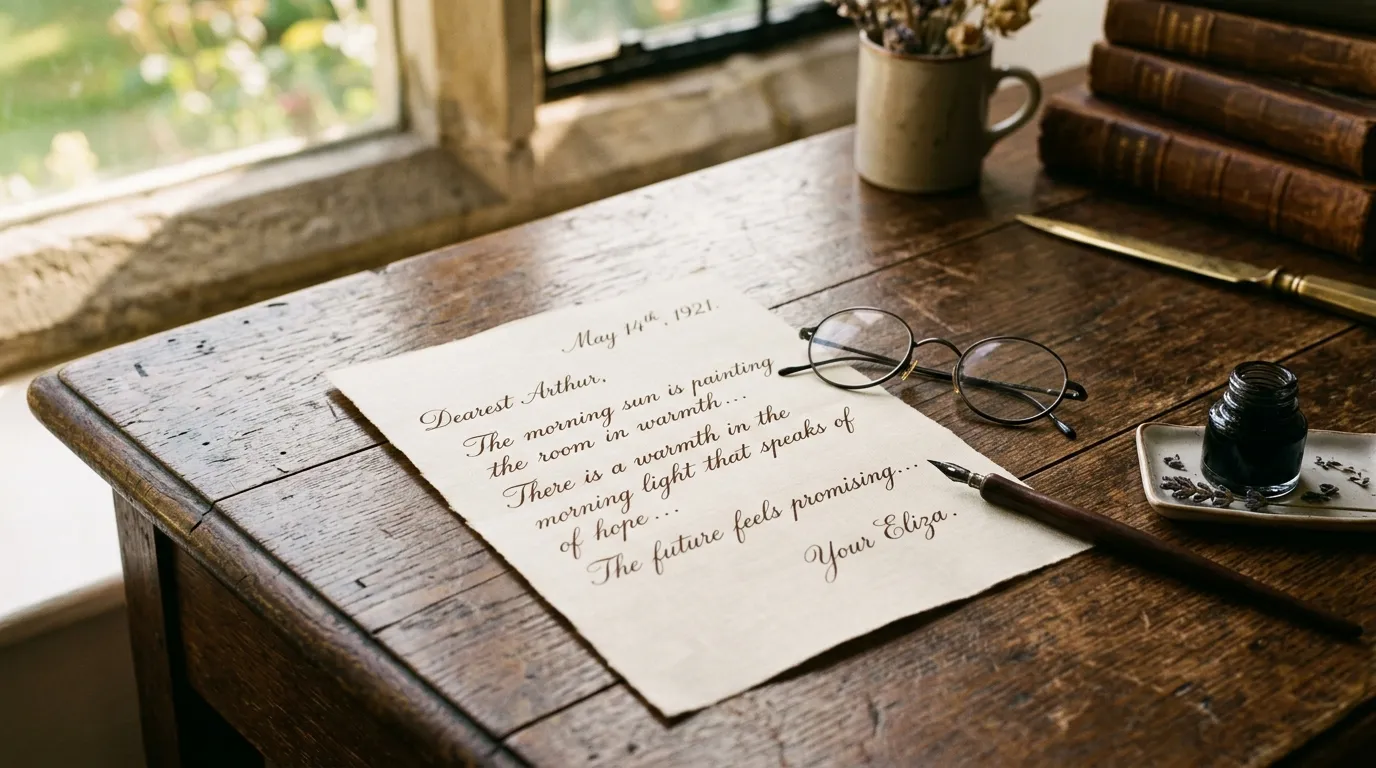 May 14th, 1921.
Dearest Arthur,
The morning sun is painting
the room in warmth...
There is a warmth in the
morning light that speaks of
of hope...
The future feels promising...
Your Eliza.